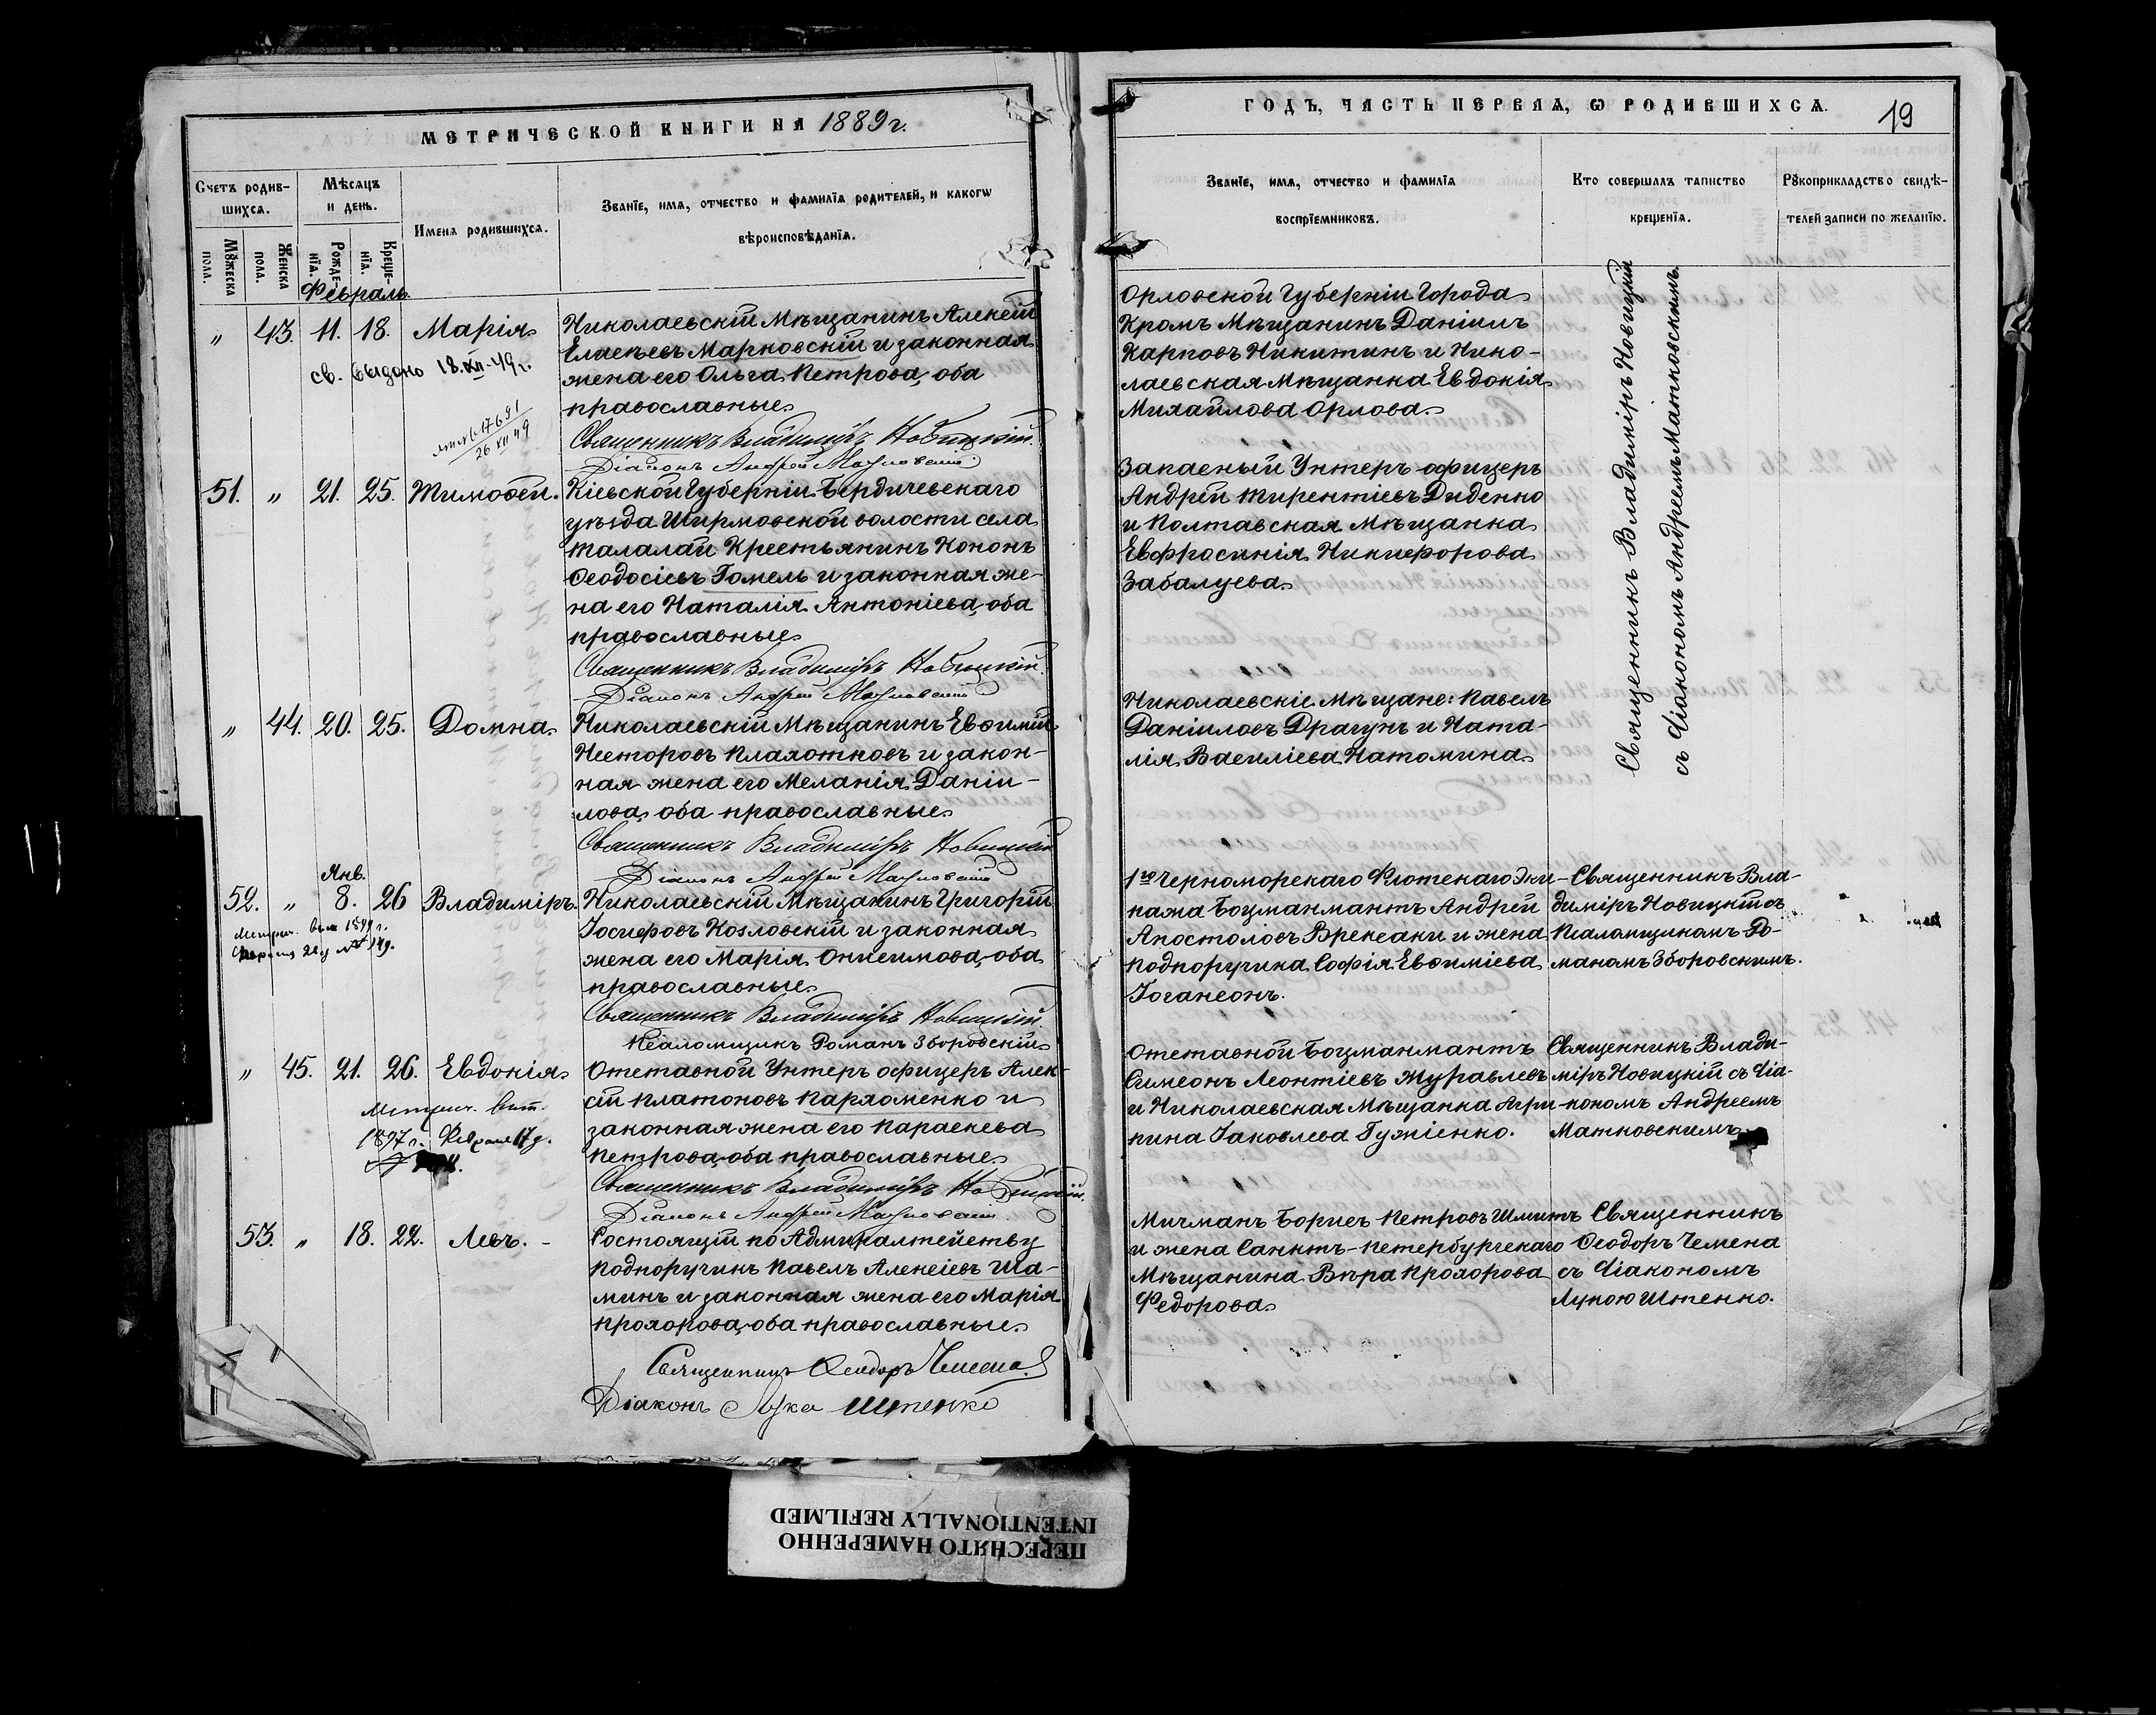 МЕТРИЧЕСКОЙ КНИГИ НА 1889 г.
Счетъ родив-
шихся.
Мѣсяцъ
и день.
Имена родившихся.
Званіе, имя, отчество и фамилія родителей, и какогѡ
вѣроисповѣданія.
Мꙋжеска
пола.
Женска
пола.
Рожде-
нія.
Креще-
нія.
Февраль.
" 43. 11. 18. Марія.
св. выдано 18.XII-49 г.
26 XII 49
Николаевскій Мѣщанинъ Алексѣй
Елисѣевъ Марковскій и законная
жена его Ольга Петрова, оба
православные.
Священникъ Владиміръ Новицкій.
Діаконъ Андрей Матковскій
51. " 21. 25. Тимоѳей.
Кіевской Губерніи Бердичевскаго
уѣзда Ширмовской волости села
Талалай Крестьянинъ Кононъ
Ѳеодосіевъ Гомель и законная же-
на его Наталія Антоніева, оба
православные.
Священникъ Владиміръ Новицкій.
Діаконъ Андрей Матковскій
" 44. 20. 25. Домна.
Николаевскій Мѣщанинъ Евѳимій
Несторовъ Плахотковъ и закон-
ная жена его Меланія Даніи-
лова, оба православные.
Священникъ Владиміръ Новицкій
Діаконъ Андрей Матковскій
Янв.
52. " 8. 26 Владиміръ.
Николаевскій Мѣщанинъ Григорій
Іосифовъ Козловскій и законная
жена его Марія Онисимова, оба
православные.
Священникъ Владиміръ Новицкій.
Псаломщикъ Романъ Зборовскій
" 45. 21. 26. Евдокія.
Метрич. выт.
1897 г. Февраля 17 д.
Отставной Унтеръ офицеръ Алек-
сій Платоновъ Пархоменко и
законная жена его Параскева
Петрова, оба православные.
Священникъ Владиміръ Новицкій.
Діаконъ Андрей Матковскій.
53. " 18. 22. Левъ. -
Состоящій по Адмиралтейству
Подпоручикъ Павелъ Алексіевъ Ша-
минъ и законная жена его Марія
Прохорова, оба православные.
Священникъ Ѳеодоръ Чемена
Діаконъ Лука Штенко
ГОДЪ, ЧАСТЬ ПЕРВАЯ, Ѡ РОДИВШИХСЯ.
19
Званіе, имя, отчество и фамилія
воспріемниковъ.
Кто совершалъ таинство
крещенія.
Рꙋкоприкладство свидѣ-
телей записи по желанію.
Орловской Губерніи Города
Кромъ Мѣщанинъ Даніилъ
Карповъ Никитинъ и Нико-
лаевская Мѣщанка Евдокія
Михайлова Орлова.
Запасный Унтеръ-офицеръ
Андрей Тирентіевъ Диденко
и Полтавская Мѣщанка
Евфросинія Никифорова
Забалуева.
Николаевскіе Мѣщане: Павелъ
Даніиловъ Драгунъ и Ната-
лія Василіева Натомина.
Священникъ Владиміръ Новицкій
съ Діакономъ Андреемъ Матковскимъ.
1го Черноморскаго Флотскаго Эки-
пажа Боцманматъ Андрей
Апостоловъ Врексаки и жена
Подпоручика Софія Евѳиміева
Іогансонъ.
Священникъ Вла-
диміръ Новицкій съ
Псаломщикомъ Ро-
маномъ Зборовскимъ.
Отставной Боцманматъ
Симеонъ Леонтіевъ Журавлевъ
и Николаевская Мѣщанка Агри-
пина Іаковлева Гужіенко.
Священникъ Влади-
міръ Новицкій съ Діа-
кономъ Андреемъ
Матковскимъ.
Мичманъ Борисъ Петровъ Шмитъ
и жена Санктъ-Петербургскаго
Мѣщанина Вѣра Прохорова
Федорова.
Священникъ
Ѳеодоръ Чемена
съ Діакономъ
Лукою Штенко.
ПЕРЕСНЯТО НАМЕРЕННО
INTENTIONALLY REFILMED